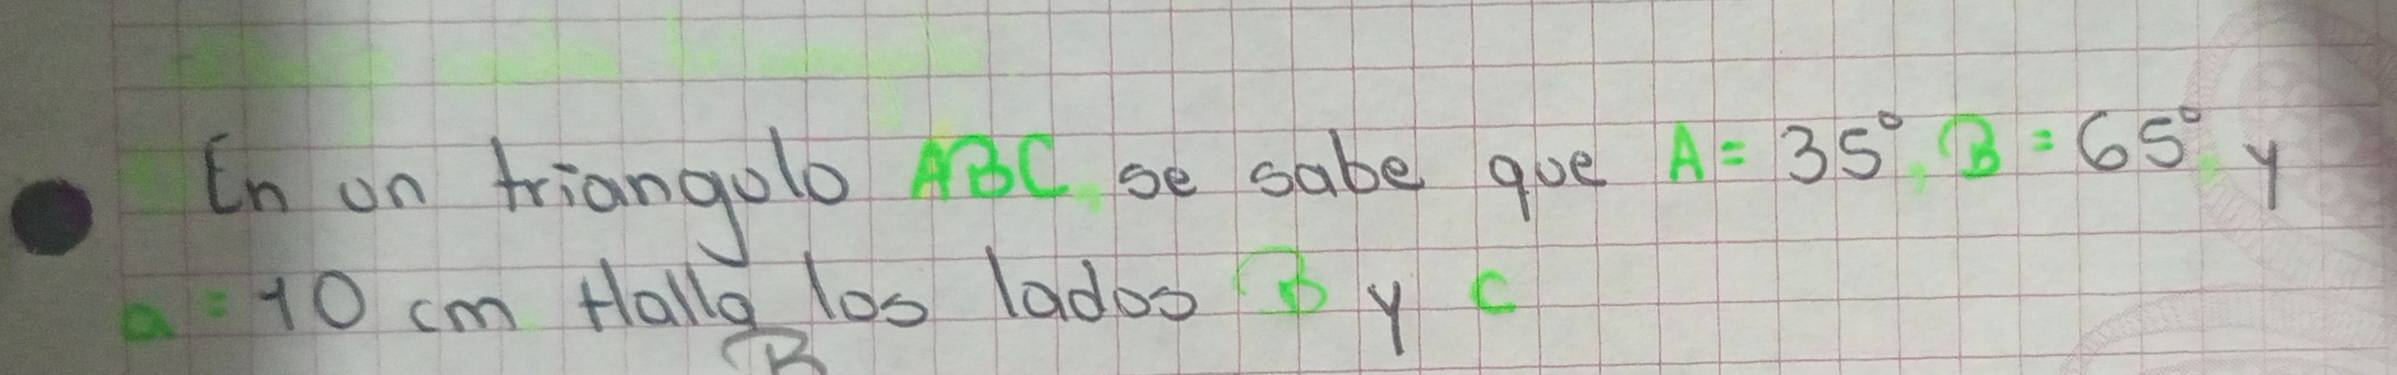 En un triangulo ABC, se sabe que A = 35°, B = 65° y
a = 10 cm Halla los lados B y C
B